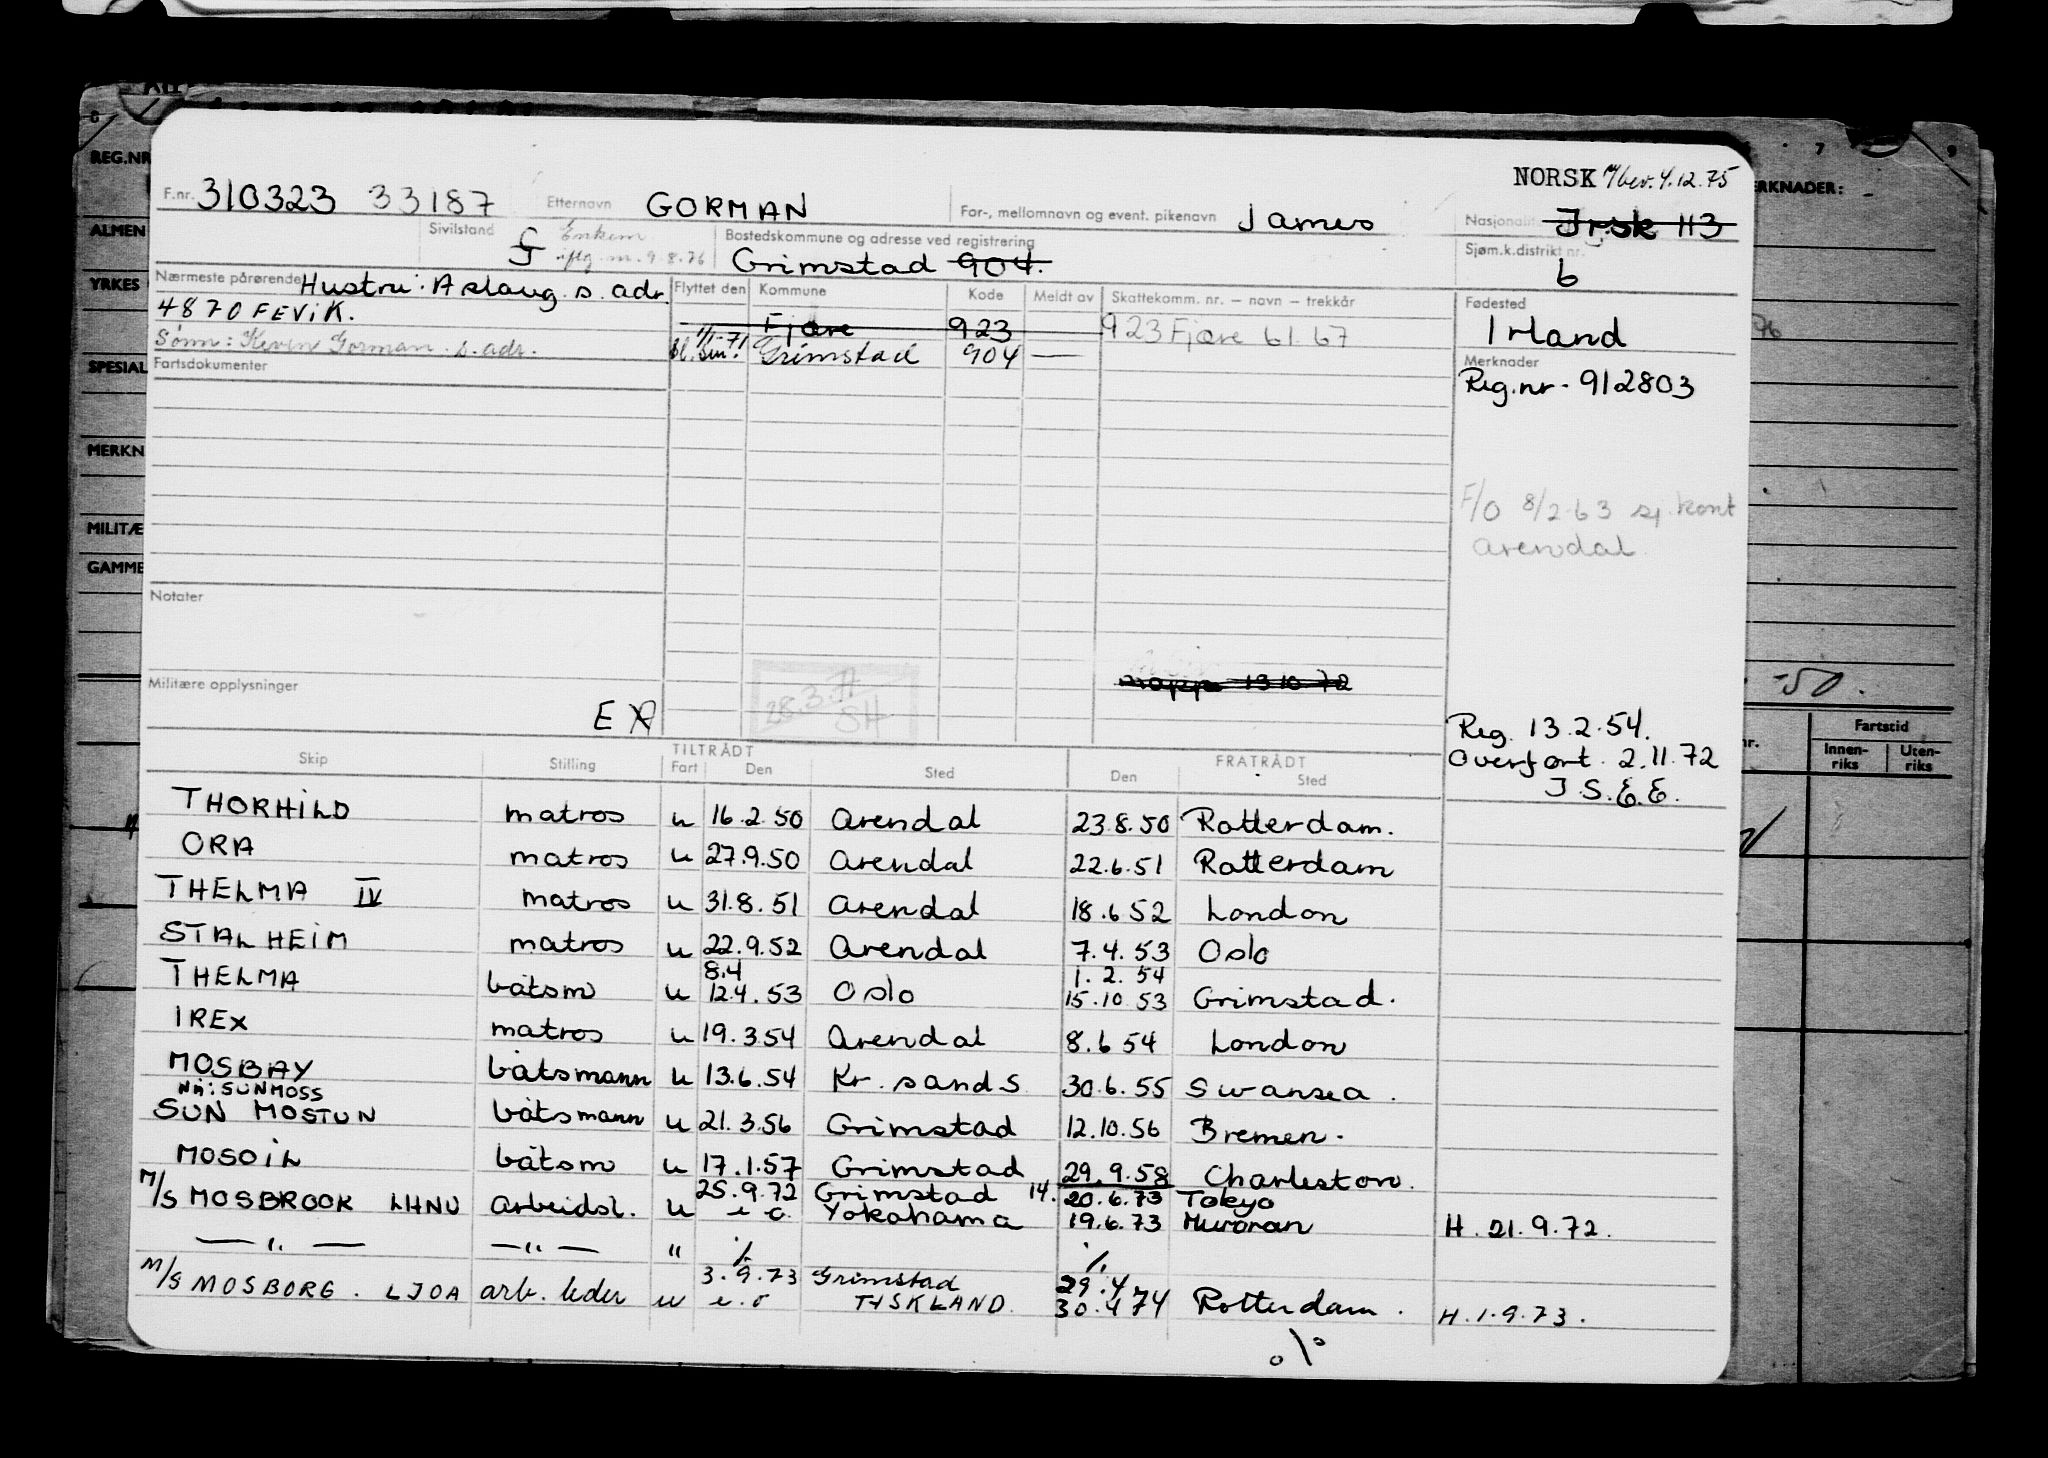 NORSK 4.12.75
F.nr. 310323 33187 Etternavn GORMAN For-, mellomnavn og event. pikenavn James Nasjonalitet Irsk 113
Sivilstand G Enkem. iflg. m. 9.8.76 Bostedskommune og adresse ved registrering Grimstad 904. Sjøm.k.distrikt nr. 6
Nærmeste pårørende Hustru: Aslaug s. adr. Flyttet den Kommune Kode Meldt av Skattekomm. nr. – navn – trekkår Fødested
4870 FEVIK. Fjære 923 923 Fjære 61. 67 Irland
Sønn: Kevin Gorman s. adr. 1/1-71 Grimstad 904 — Merknader
Fartsdokumenter Reg.nr - 912803
F/O 8/2-63 sj. kont
Arendal
Notater
28.3.77
SH
13 10 72
Militære opplysninger
E
Reg. 13.2.54.
Overført. 2.11.72
J.S.E.E.
Skip Stilling TILTRÅDT Fart Den Sted FRATRÅDT Den Sted
THORHILD matros u 16.2.50 Arendal 23.8.50 Rotterdam.
ORA matros u 27.9.50 Arendal 22.6.51 Rotterdam
THELMA IV matros u 31.8.51 Arendal 18.6 52 London
STALHEIM matros u 22.9.52 Arendal 7.4.53 Oslo
8.4 1.2.54
THELMA båtsm u 12.4.53 Oslo 15.10 53 Grimstad.
IREX matros u 19.3.54 Arendal 8.6 54 London
MOSBAY båtsmann u 13.6.54 Kr. sand S 30.6.55 Swansea.
Nå: SUNMOSS
SUN MOSTUN båtsmann u 21.3.56 Grimstad 12.10.56 Bremen.
MOSOIL båtsm u 17.1.57 Grimstad 29.9.58 Charleston.
25.9.72 Grimstad 14. 20.6.73 Tokyo
M/S MOSBROOK LHNU arbeidsl. u e.o. Yokohama 19.6.73 Muroran H. 21.9.72.
— " — — " — " ·/. ·/.
3.9.73 Grimstad 29.4.
M/S MOSBORG. LJOA arb. leder u e.o TYSKLAND. 30.4 74 Rotterdam. H.1.9.73.
REG.NR
ALMEN
YRKES
SPESIAL
MERKN
MILITÆ
GAMME
MERKNADER:
-50.
Fartstid
Innenriks Utenriks